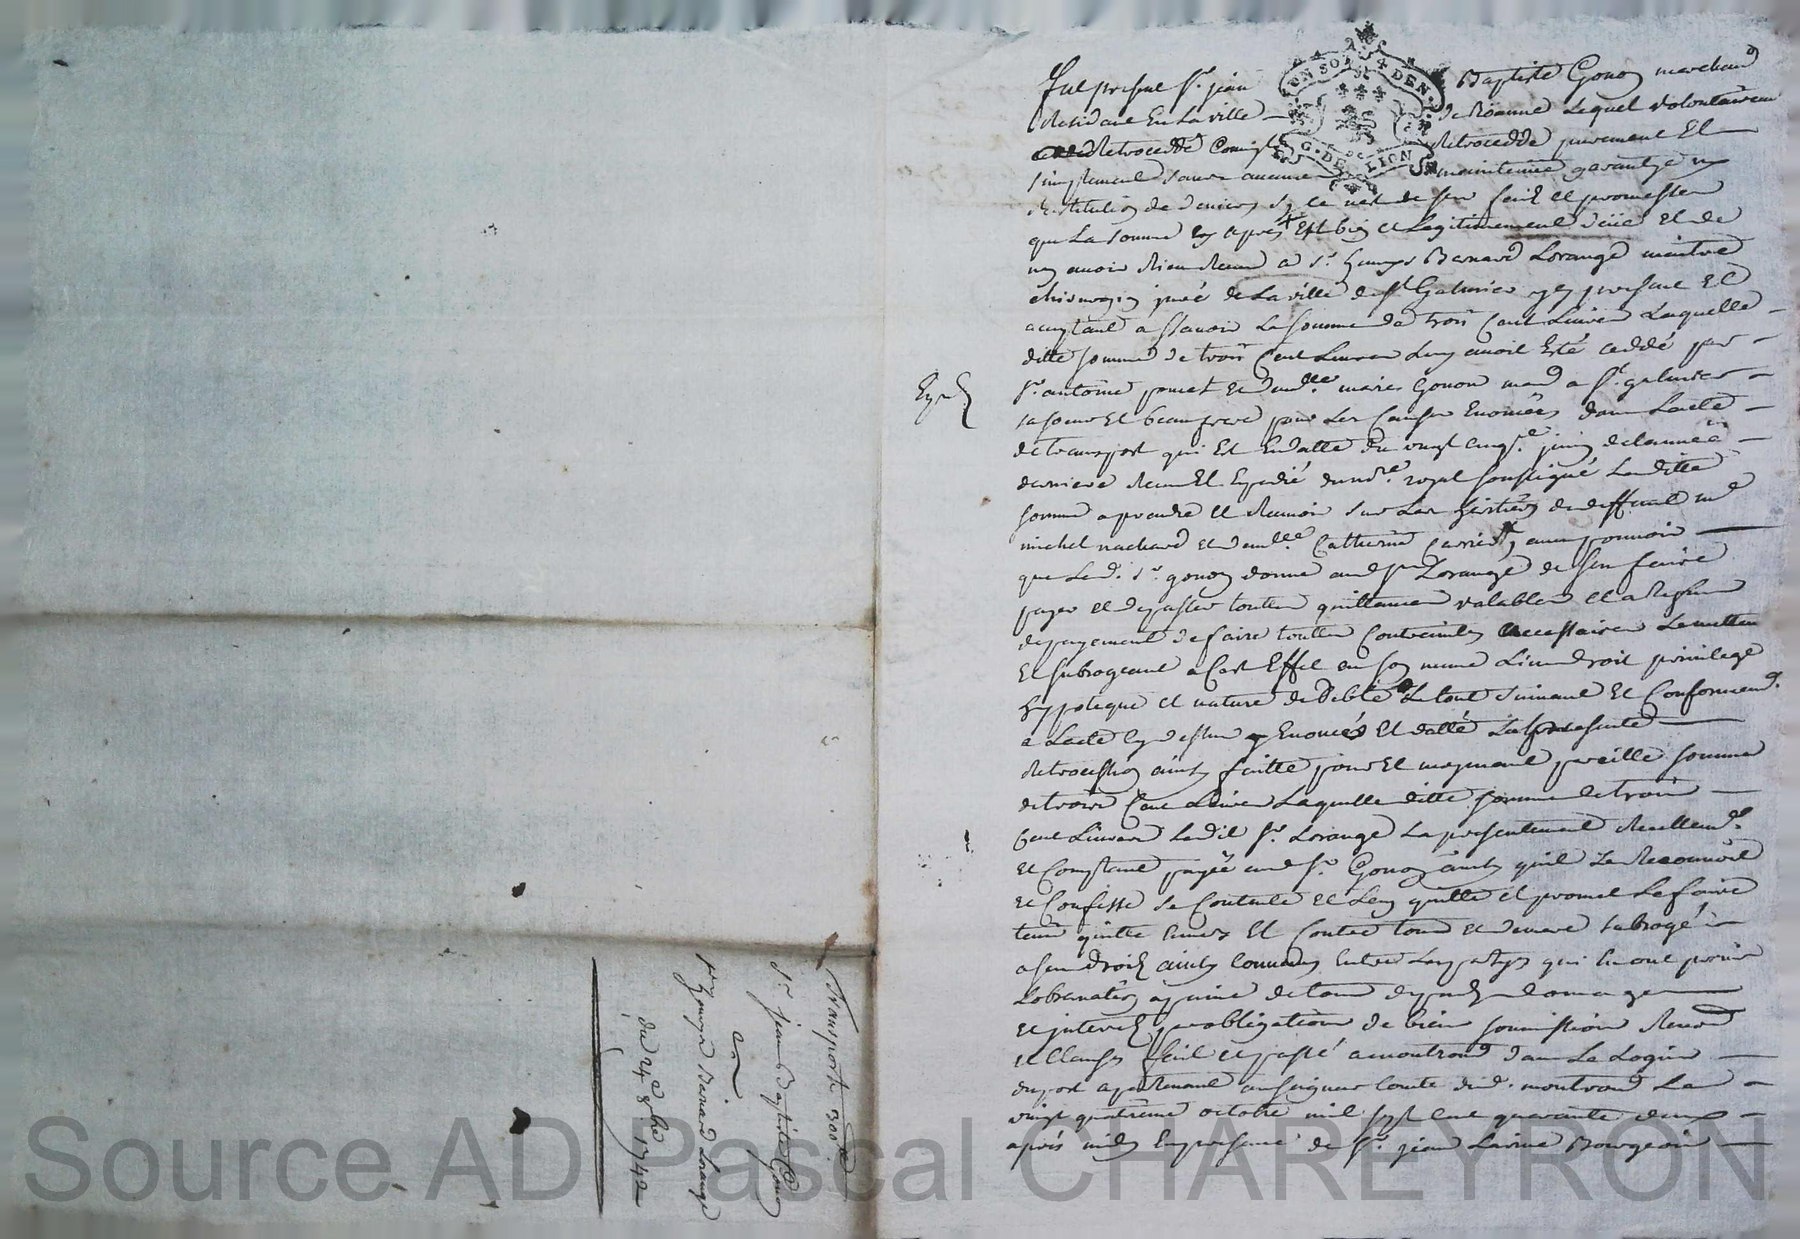 Fut present Sr. jean Baptiste Gonon marchand
Residant En La ville de Roanne Lequel volontairem
Retrocedde Comis Retrocedde purement Et
simplement sans aucune maintenüe garantye ny
Restitution de deniers sy ce nest de ses faits et promesses
que La somme cy apres Est bien et Legitimement düe et de
ny avoir Rien Receu a Sr. Barnard Lorange maitre
chirurgien juré de La ville de St Galmier icy present Et
acceptant a sçavoir La somme de trois Cent Livres Laquelle
ditte somme de trois Cent Livres Luy avoit Esté ceddé par
Sr. antoine poncet et dmlle. marie Gonon mard a St. galmier
sa soeur Et beaufrere pour Les Causes Enoncées dans Lacte
de transport qui Est En datte du vingt cinqe. juin de Lannée
derniere Receu Et Expedié du nore. royal soussigné Laditte
somme a prendre et Recevoir sur Les heritiers de deffunt
michel nachard et dmlle. Catherine avec pouvoir
que Led. Sr. gonon donne aud Sr Lorange de sen faire
payer et depasser toutes quittances valables et a Refus
de payement de faire touttes Contraintes necessaires Le mettan
Et subrogeant a Cet Effet en son Lieu droit privilege
hypoteque et nature de debte Le tout suivant Et Conformemt.
a Lacte cy dessus Enoncés Et datté La presente
Retrocession ainsy faitte pour Et moyenant pareille somme
de trois Cent Livres Laquelle ditte somme de trois
Cent Livres Ledit Sr. Lorange La presentement Reellemt.
et Comptant payée aud Sr. Gonon ainsy quil Le Reconnoit
et Confesse se Contente et Len quitte et promet Le faire
tenir quitte Envers Et Contre tous et demeure subrogé
a ses droits ainsy Convenu Entre Les partyes qui En ont promis
Lobservation a peine de tous depens domages
et interests par obligation de biens soumission Renond
et Clauses fait et passé a montrond dans Le Logis
du port apartenant au seigneur Comte dud. montrond Le
vingt quatrieme octobre mil sept Cent quarante deux
après midy En presence de Sr. jean Bourgeois
EN SOL 4 DEN.
G. DE LION
Transport 300
Sr. jean Baptiste Gonon
a
Sr Barnard Lorange
du 24e 8bre 1742
Source AD Pascal CHAREYRON